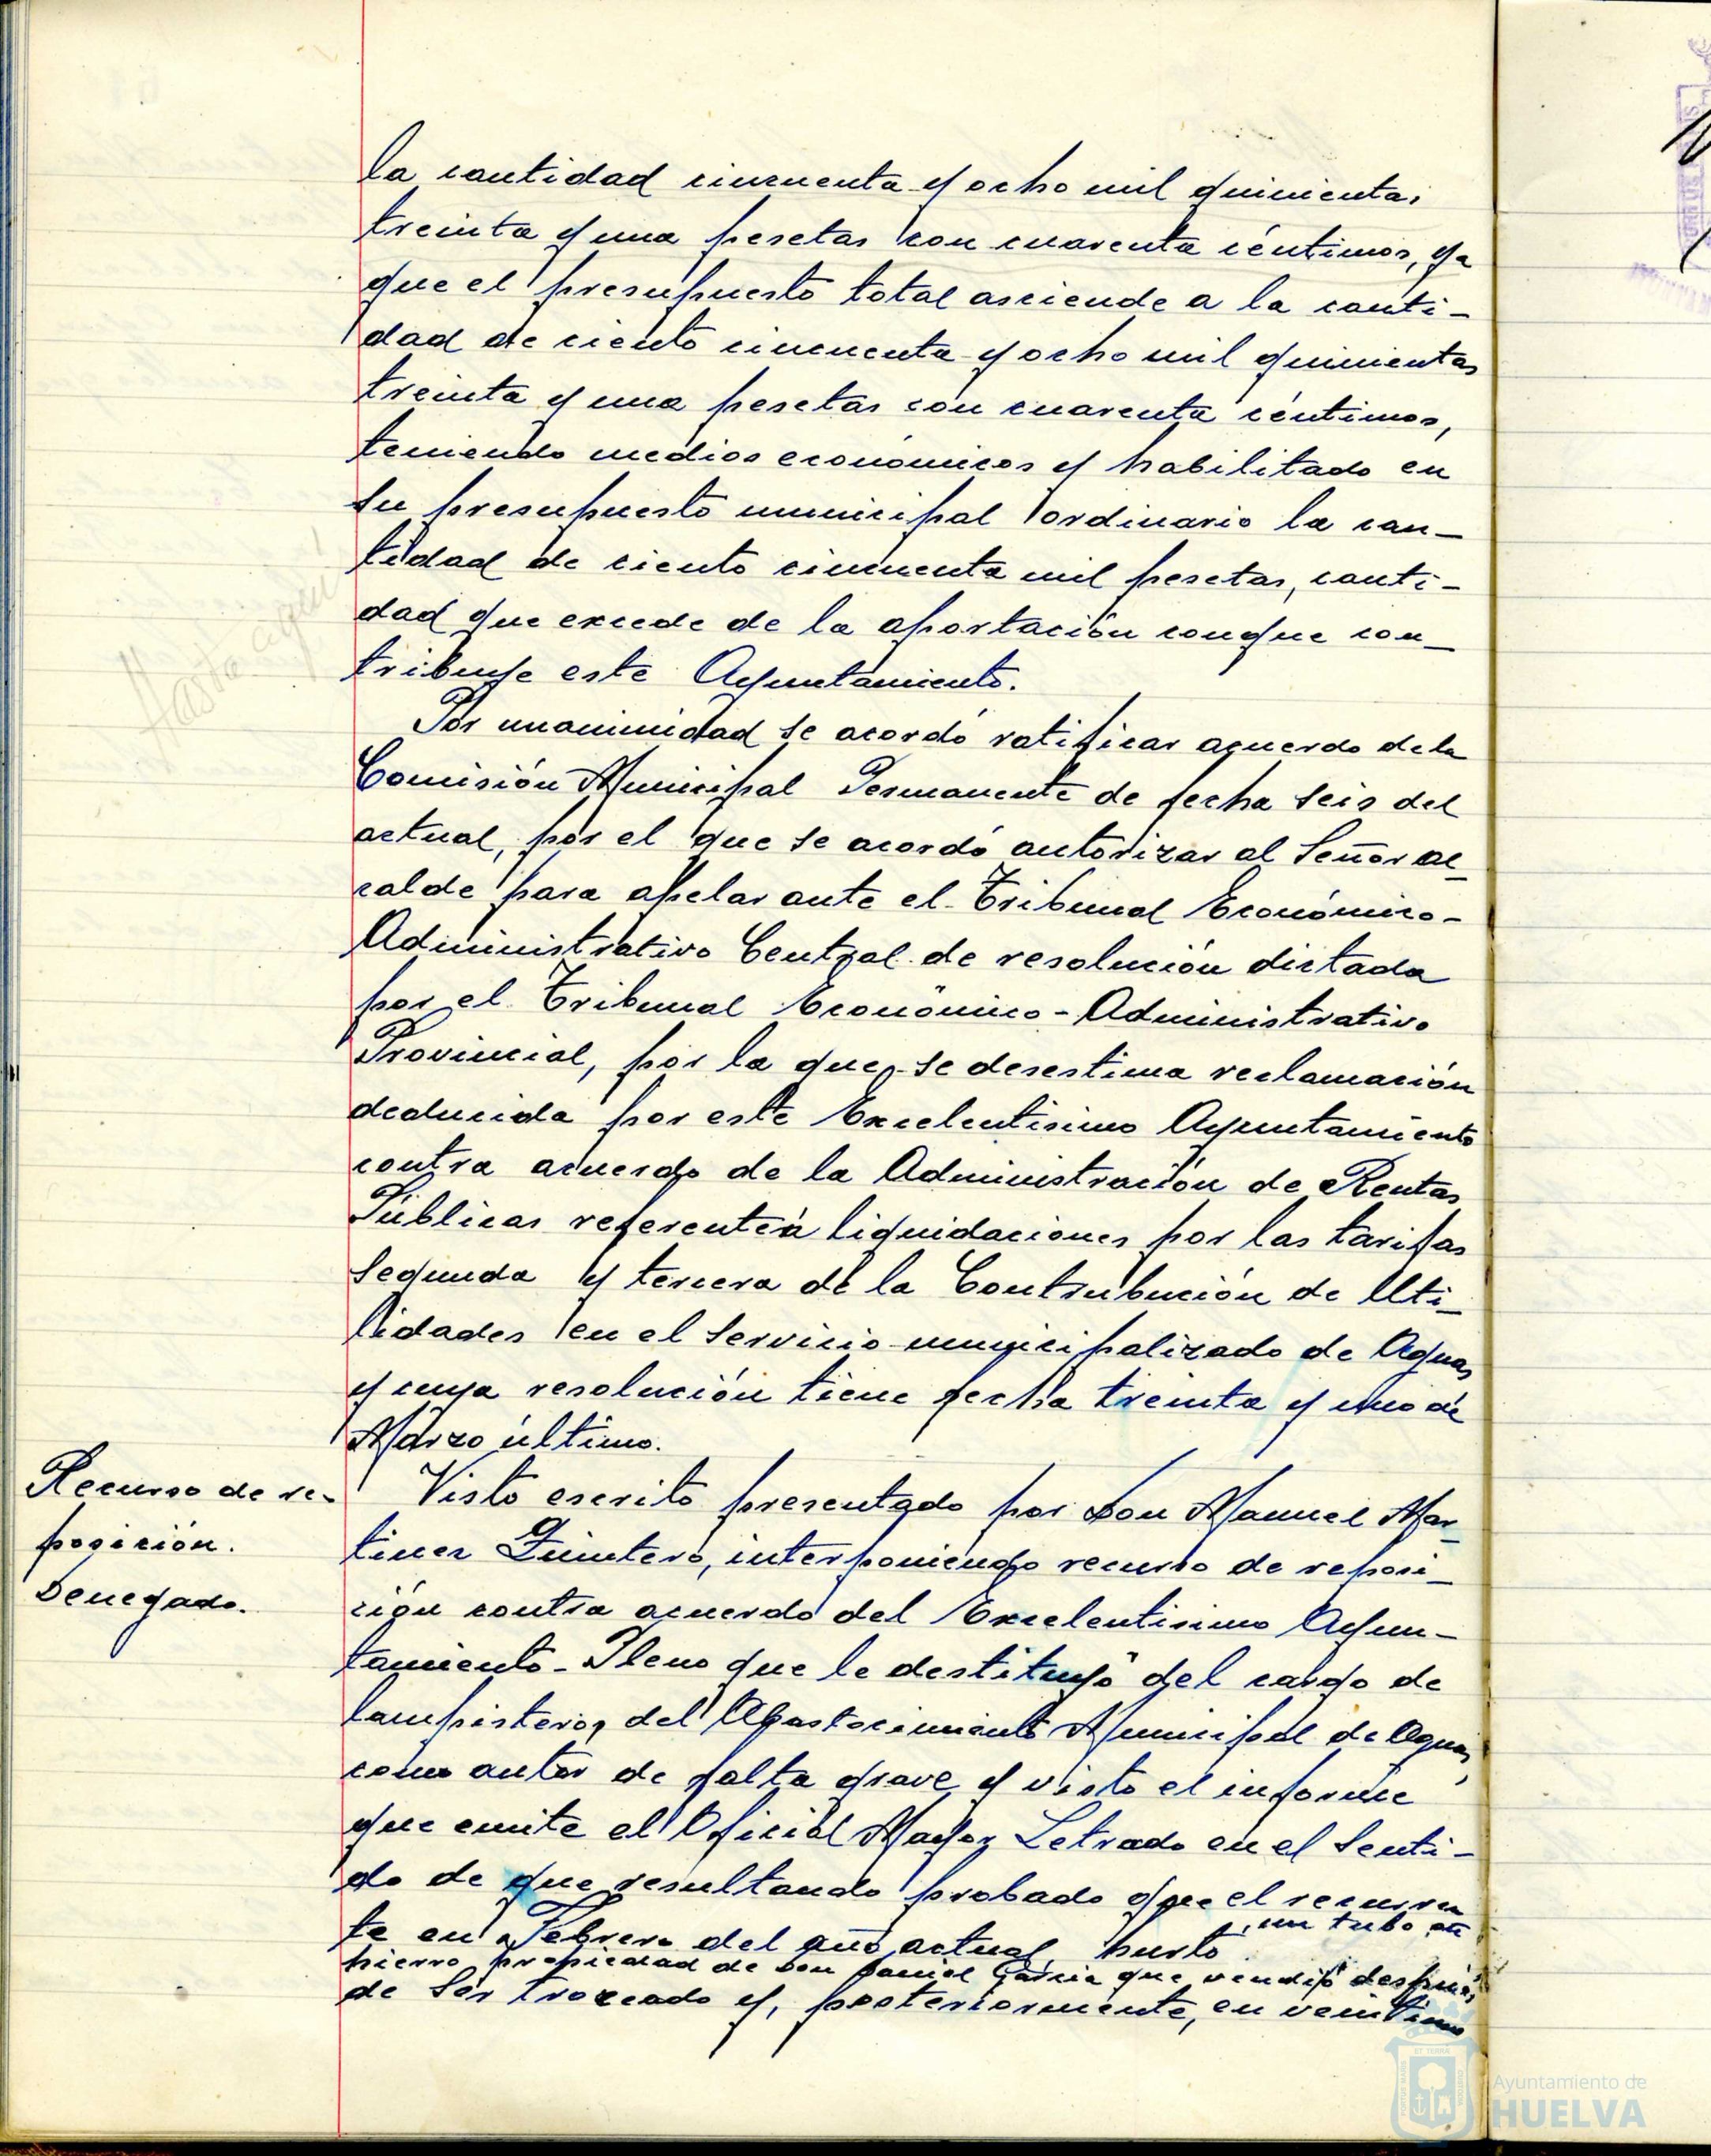 la cantidad cincuenta y ocho mil quinientas
treinta y una pesetas con cuarenta céntimos, ya
que el presupuesto total asciende a la canti-
dad de ciento cincuenta y ocho mil quinientas
treinta y una pesetas con cuarenta céntimos,
teniendo medios económicos y habilitado en
su presupuesto municipal ordinario la can-
tidad de ciento cincuenta mil pesetas, canti-
dad que excede de la aportación conque con-
tribuye este Ayuntamiento.
Hasta aquí
Por unanimidad se acordó ratificar acuerdo de la
Comisión Municipal Permanente de fecha seis del
actual, por el que se acordó autorizar al Señor Al-
calde para apelar ante el Tribunal Económico-
Administrativo Central de resolución dictada
por el Tribunal Económico-Administrativo
Provincial, por la que se desestima reclamación
deducida por este Excelentísimo Ayuntamiento
contra acuerdo de la Administración de Rentas
Públicas referente a liquidaciones por las tarifas
segunda y tercera de la Contribución de Uti-
lidades en el servicio municipalizado de Aguas
y cuya resolución tiene fecha treinta y uno de
Marzo último.
Recurso de re-
posición.
Denegado.
Visto escrito presentado por Don Manuel Mar-
tinez Quintero, interponiendo recurso de reposi-
ción contra acuerdo del Excelentisimo Ayun-
tamiento-Pleno que le destituyó del cargo de
lampistero, del Abastecimiento Municipal de Aguas,
como autor de falta grave y visto el informe
que emite el Oficial Mayor Letrado en el senti-
do de que resultando probado que el recurren
te en Febrero del año actual hurtó un tubo de
hierro propiedad de Don Daniel García que vendió después
de ser trozeado y, posteriormente, en veintiuno
Ayuntamiento de
HUELVA